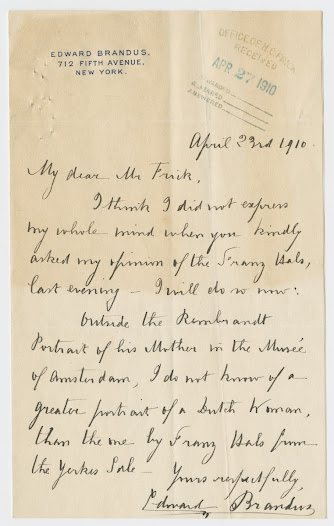 EDWARD BRANDUS,
712 FIFTH AVENUE,
NEW YORK.
OFFICE OF H.C. FRICK
RECEIVED
APR 27 1910
ANSWERED
April 23rd 1910.
My dear Mr Frick,
I think I did not express
my whole mind when you kindly
asked my opinion of the Franz Hals,
last evening – I will do so now:
Outside the Rembrandt
Portrait of his Mother in the Musée
of Amsterdam, I do not know of a
greater portrait of a Dutch Woman,
than the one by Franz Hals from
the Yerkes Sale –
Yours respectfully,
Edward Brandus